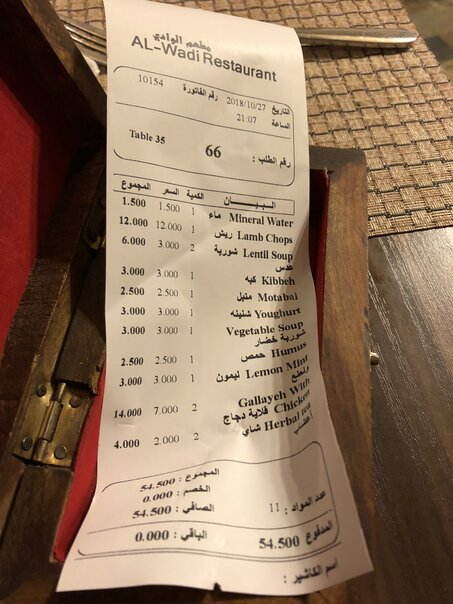 مطعم الوادي
AL-Wadi Restaurant
10154 رقم الفاتورة 2018/10/27 التاريخ
21:07 الساعة
Table 35 66 رقم الطلب :
المجموع السعر الكمية البيـــان
1.500 1.500 1 ماء Mineral Water
12.000 12.000 1 ريش Lamb Chops
6.000 3.000 2 شوربة Lentil Soup
عدس
3.000 3.000 1 كبه Kibbeh
2.500 2.500 1 متبل Motabal
3.000 3.000 1 شنينه Youghurt
3.000 3.000 1 Vegetable Soup
شوربة خضار
2.500 2.500 1 حمص Humus
3.000 3.000 1 ليمون Lemon Mint
ونعنع
14.000 7.000 2 Gallayeh With
قلاية دجاج Chicken
4.000 2.000 2 شاي Herbal tea
أعشاب
المجموع : 54.500
الخصم : 0.000
عدد المواد : 11 الصافي : 54.500
المدفوع 54.500 الباقي : 0.000
اسم الكاشير :